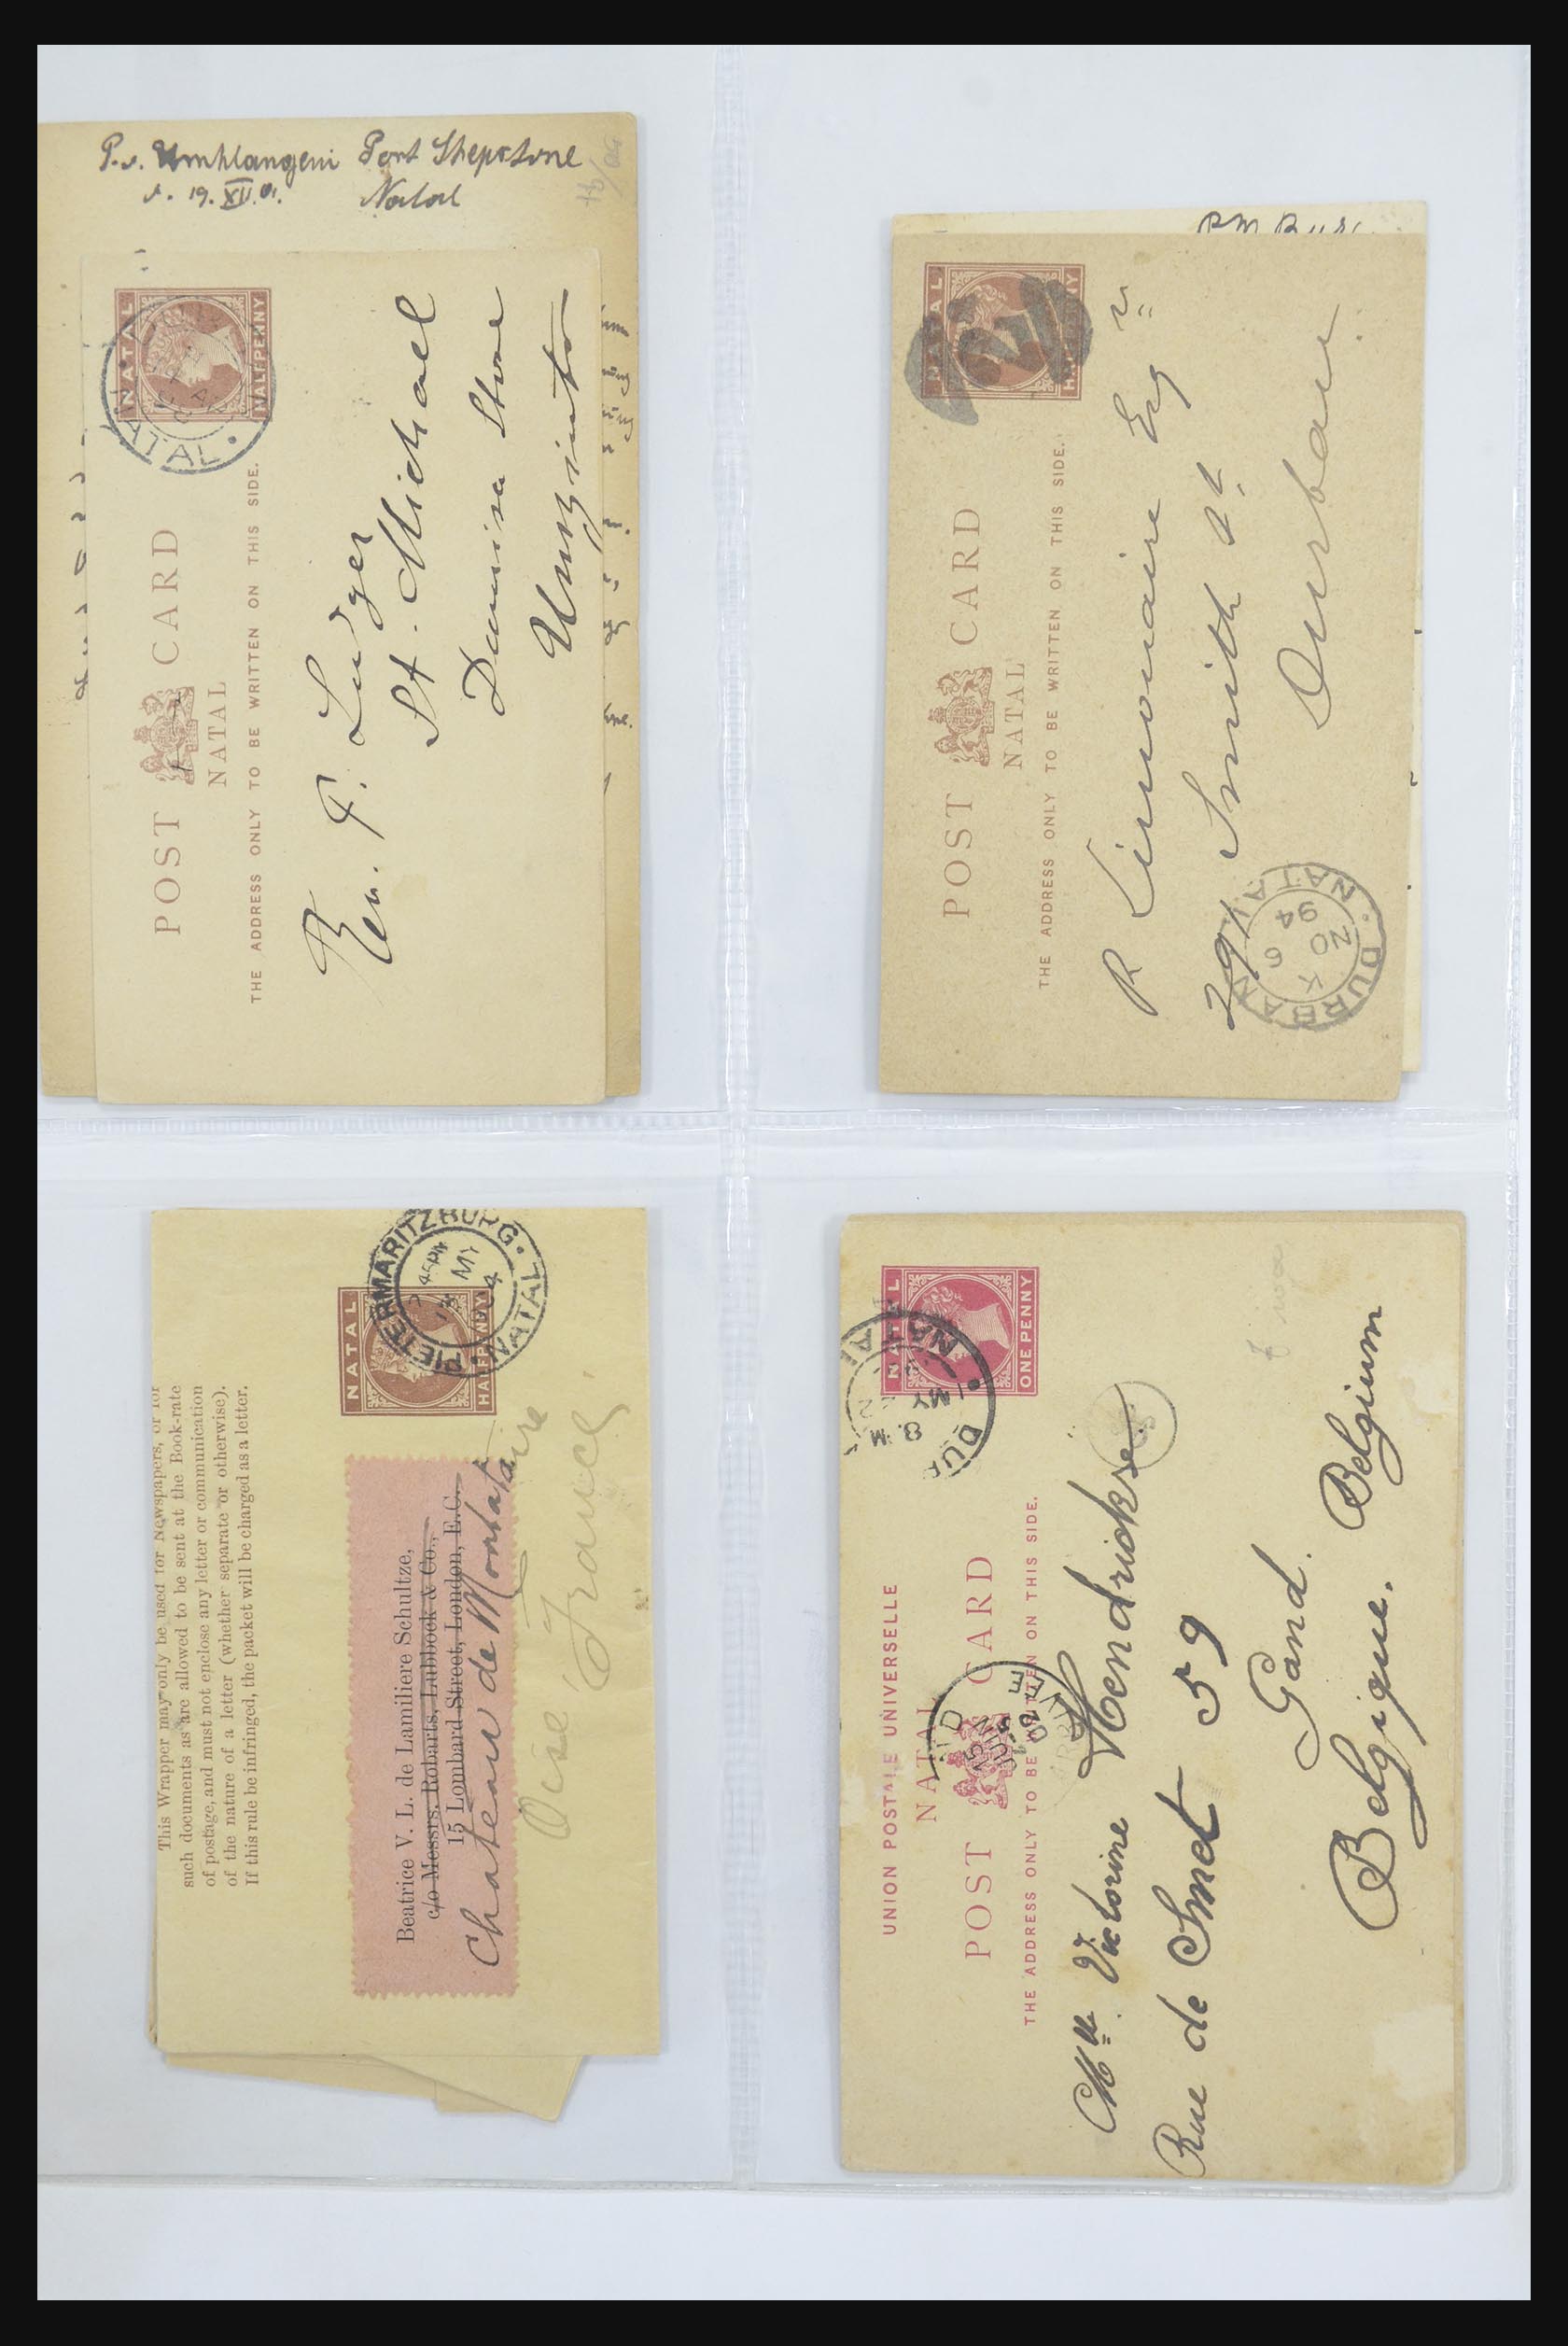 P.v. Umhlangeni Port Shepstone
d. 19. XII. 01. Natal
NATAL
HALFPENNY
NATAL
POST CARD
NATAL
THE ADDRESS ONLY TO BE WRITTEN ON THIS SIDE.
Rev. F. Ludger
St. Michael
Dumisa Store
Umzinto
NATAL
HALFPENNY
POST CARD
NATAL
THE ADDRESS ONLY TO BE WRITTEN ON THIS SIDE.
R Limonaire Esq
291 Smith St
Durban
DURBAN NATAL
K
NO 6
94
This Wrapper may only be used for Newspapers, or for
such documents as are allowed to be sent at the Book-rate
of postage, and must not enclose any letter or communication
of the nature of a letter (whether separate or otherwise).
If this rule be infringed, the packet will be charged as a letter.
NATAL
HALFPENNY
PIETERMARITZBURG NATAL
MY
04
Beatrice V. L. de Lamiliere Schultze,
c/o Messrs. Robarts, Lubbock & Co.,
15 Lombard Street, London, E.C.
Chateau de Montataire
Oise France
NATAL
ONE PENNY
UNION POSTALE UNIVERSELLE
NATAL
POST CARD
THE ADDRESS ONLY TO BE WRITTEN ON THIS SIDE.
15
JUIN
02
Mlle Victorine Hendrickse
Rue de Smet 59
Gand.
Belgique. Belgium